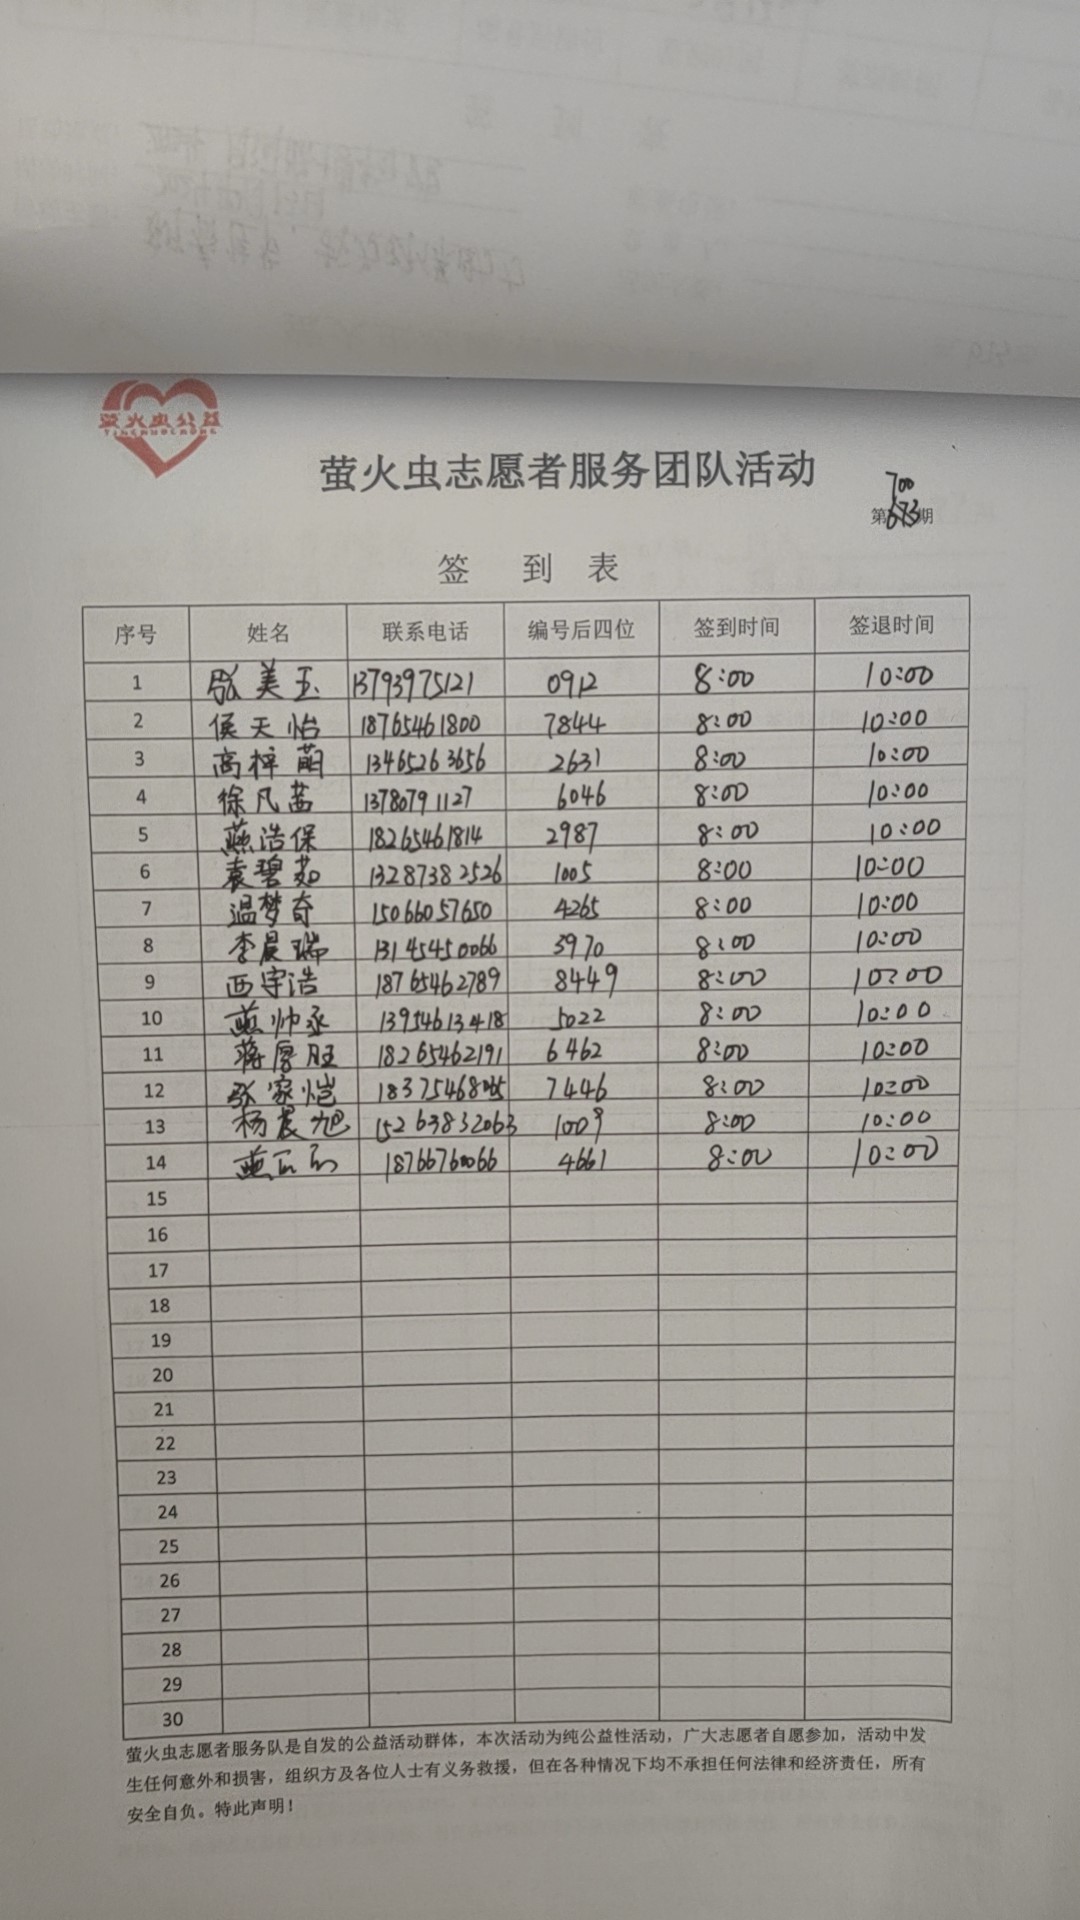 萤火虫公益
YINGHUOCHONG
萤火虫志愿者服务团队活动
700
第673期
签 到 表
序号 姓名 联系电话 编号后四位 签到时间 签退时间
1 张美玉 13793975121 0912 8:00 10:00
2 侯天怡 18765461800 7844 8:00 10:00
3 高梓萌 13465263656 2631 8:00 10:00
4 徐凡茜 13780791127 6046 8:00 10:00
5 燕浩保 18265461814 2987 8:00 10:00
6 袁碧茹 13287382526 1005 8:00 10:00
7 温梦奇 15066057650 4265 8:00 10:00
8 李晨瑞 13145450066 3970 8:00 10:00
9 西宇浩 18765462789 8449 8:00 10:00
10 燕帅丞 13954613418 5022 8:00 10:00
11 蒋厚旺 18265462191 6462 8:00 10:00
12 张家恺 18375468 7446 8:00 10:00
13 杨晨旭 15263832063 1009 8:00 10:00
14 燕 18766760066 4661 8:00 10:00
15
16
17
18
19
20
21
22
23
24
25
26
27
28
29
30
萤火虫志愿者服务队是自发的公益活动群体，本次活动为纯公益性活动，广大志愿者自愿参加，活动中发
生任何意外和损害，组织方及各位人士有义务救援，但在各种情况下均不承担任何法律和经济责任，所有
安全自负。特此声明！